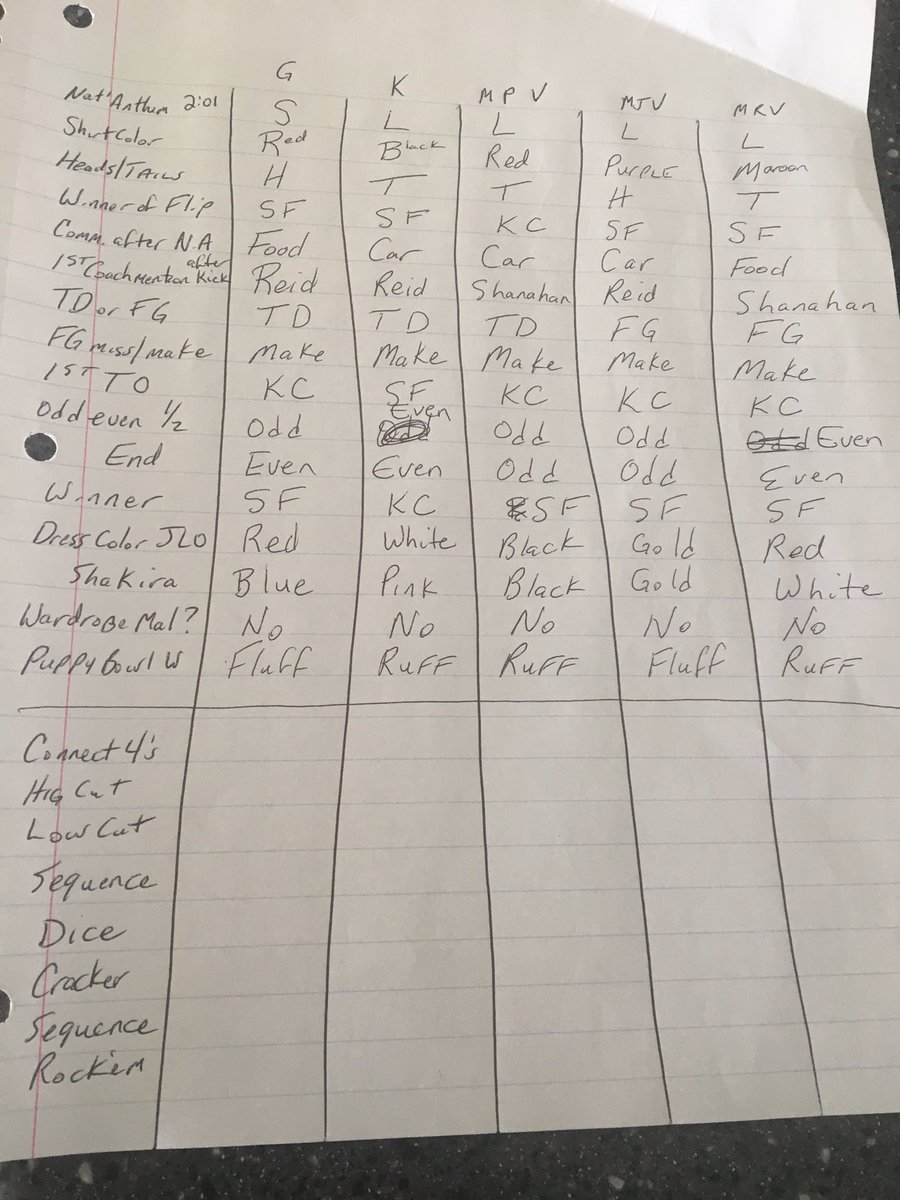 G K MPV MJV MRV
Nat'Anthum 2:01 S L L L L
Shirt Color Red Black Red Purple Maroon
Heads/Tails H T T H T
Winner of Flip SF SF KC SF SF
Comm. after N.A Food Car Car Car Food
1ST Coach mention after Kick Reid Reid Shanahan Reid Shanahan
TD or FG TD TD TD FG FG
FG miss/make Make Make Make Make Make
1ST TO KC SF KC KC KC
Odd even 1/2 Odd Even Odd Odd Odd Even
End Even Even Odd Odd Even
Winner SF KC SF SF SF
Dress Color JLO Red White Black Gold Red
Shakira Blue Pink Black Gold White
Wardrobe Mal? No No No No No
Puppy Bowl W Fluff Ruff Ruff Fluff Ruff
Connect 4's
Hig Cut
Low Cut
Sequence
Dice
Cracker
Sequence
Rock'em